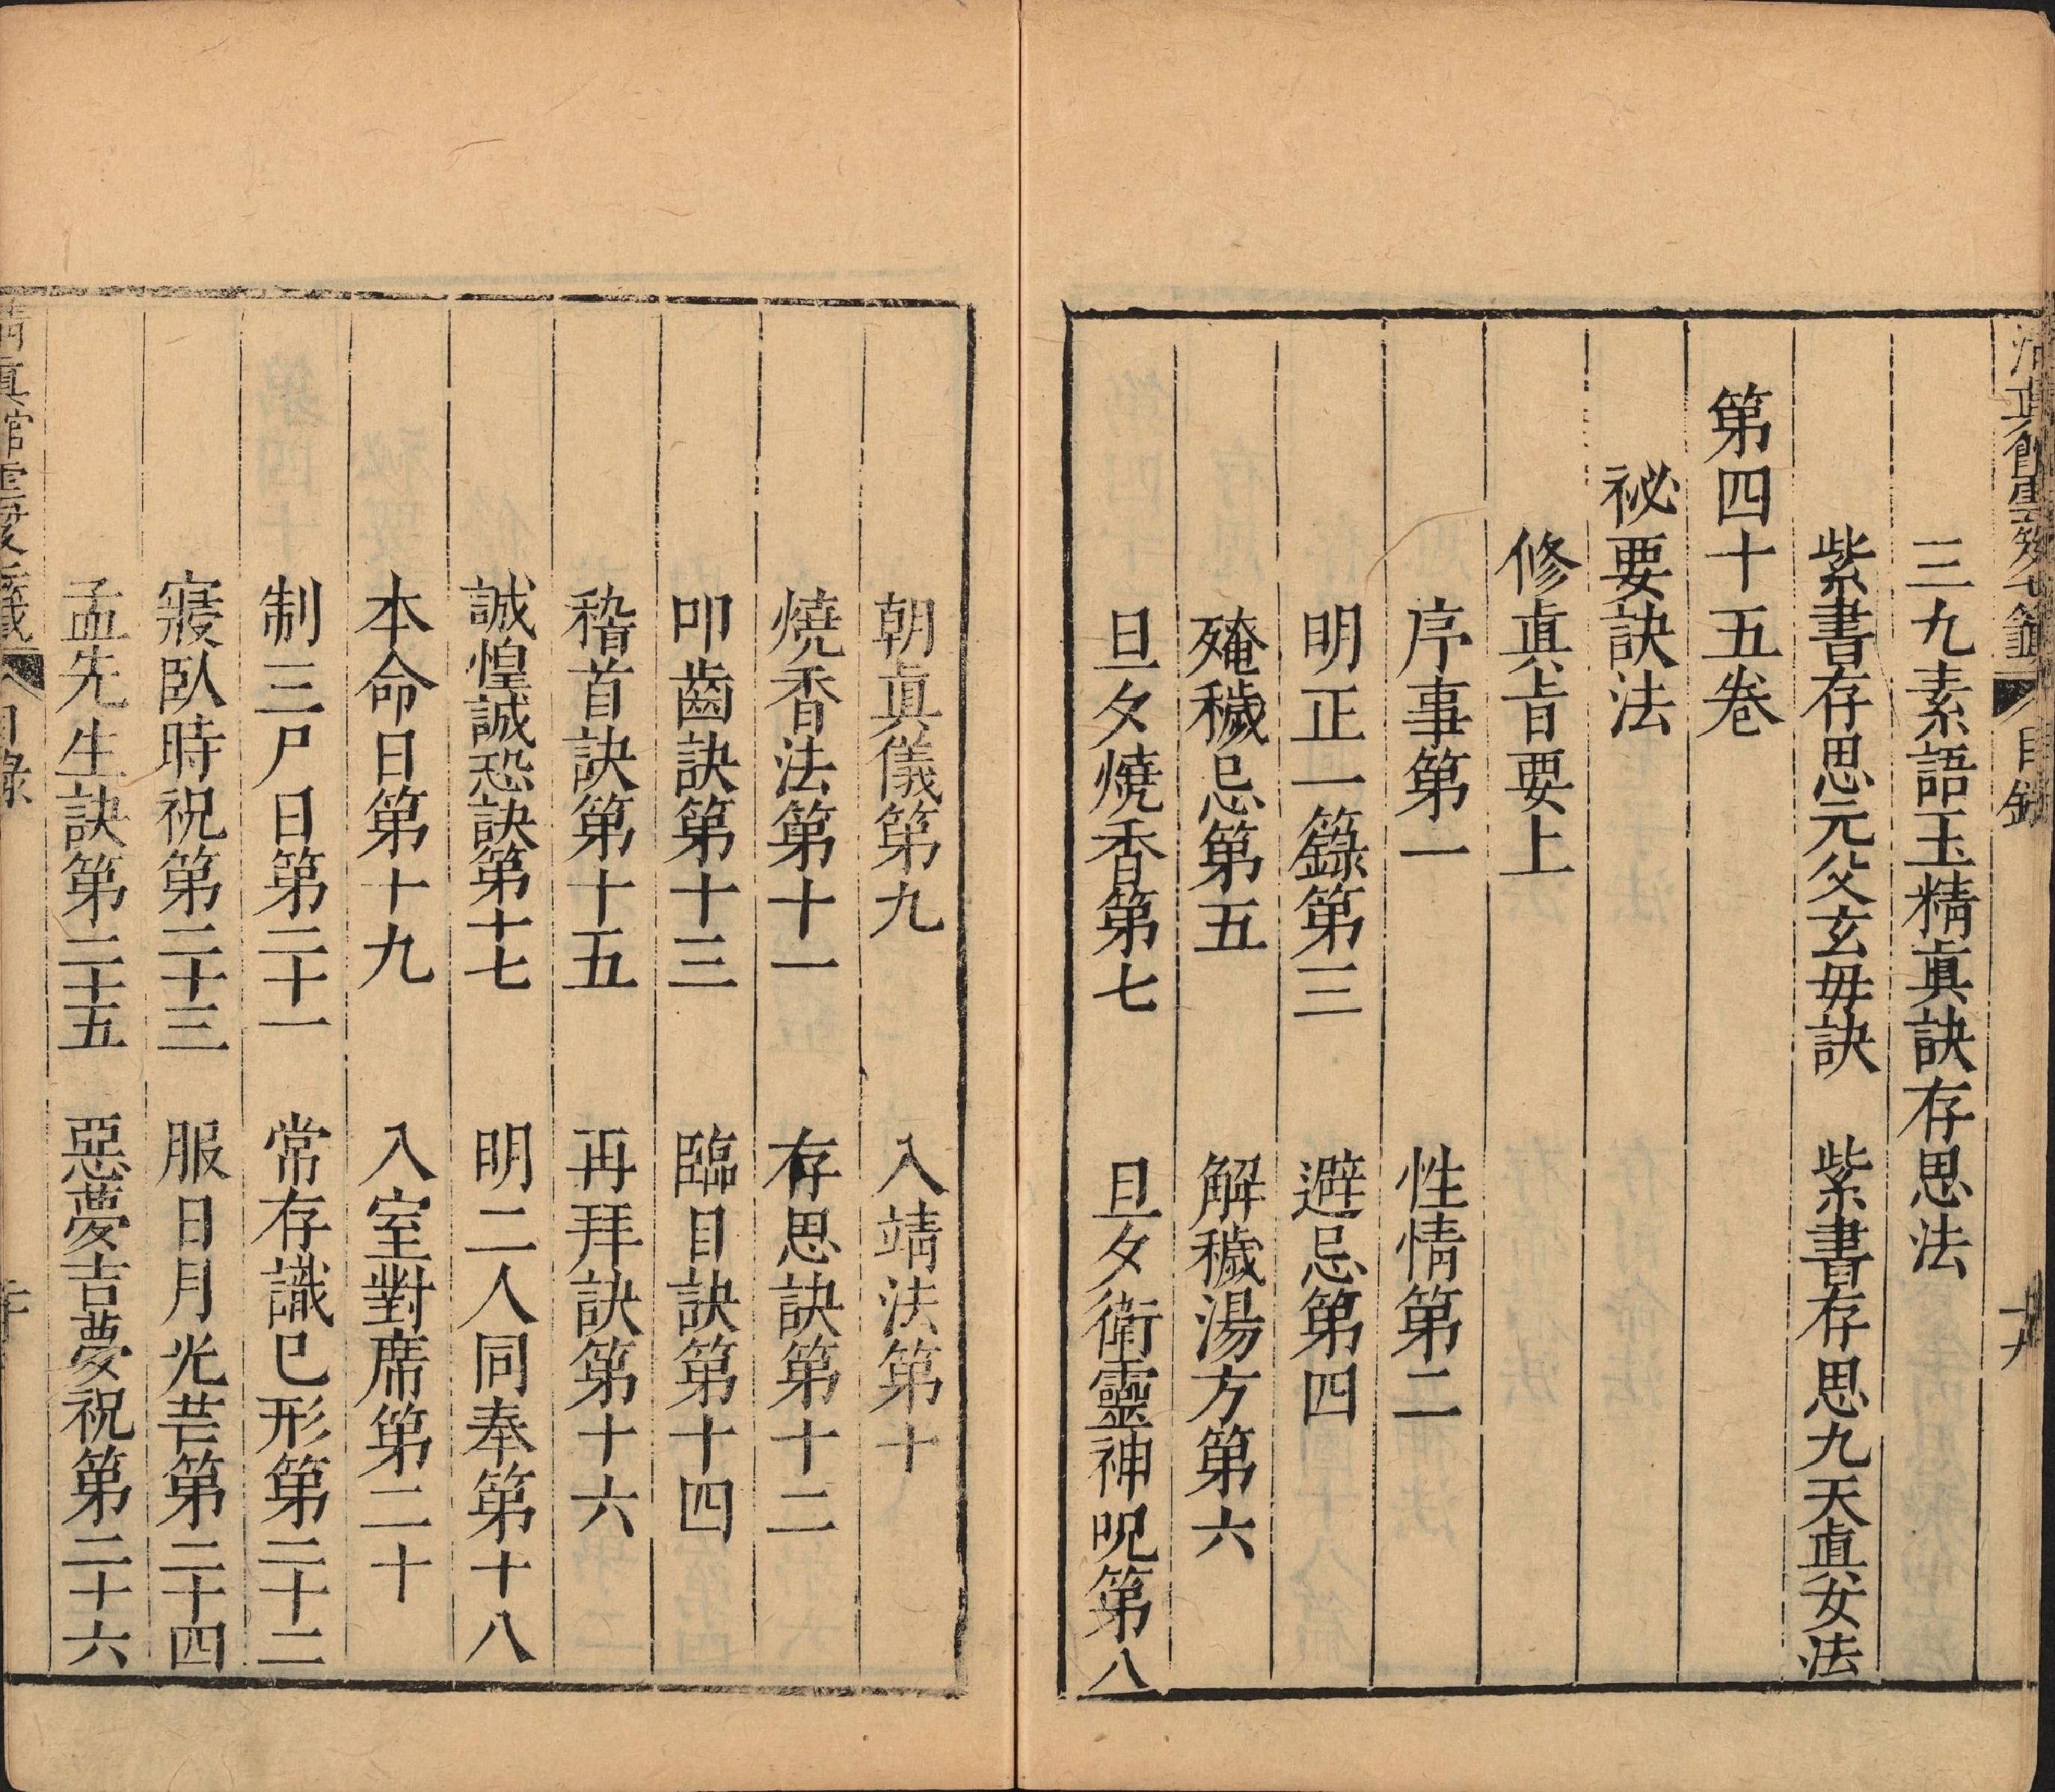 三九素語玉精眞訣存思法
紫書存思元父玄毋訣　紫書存思九天眞女法
第四十五卷
祕要訣法
修眞㫖要上
序事第一　性情第二
明正一籙第三　避忌第四
殗穢忌第五　解穢湯方第六
旦夕燒香第七　旦夕衛靈神呪第八
朝眞儀第九　入靖法第十
燒香法第十一　存思訣第十二
叩齒訣第十三　臨目訣第十四
稽首訣第十五　再拜訣第十六
誠惶誠恐訣第十七　明二人同奉第十八
本命日第十九　入室對席第二十
制三尸日第二十一　常存識巳形第二十二
寢臥時祝第二十三　服日月光芒第二十四
孟先生訣第二十五　惡夢吉夢祝第二十六
目錄